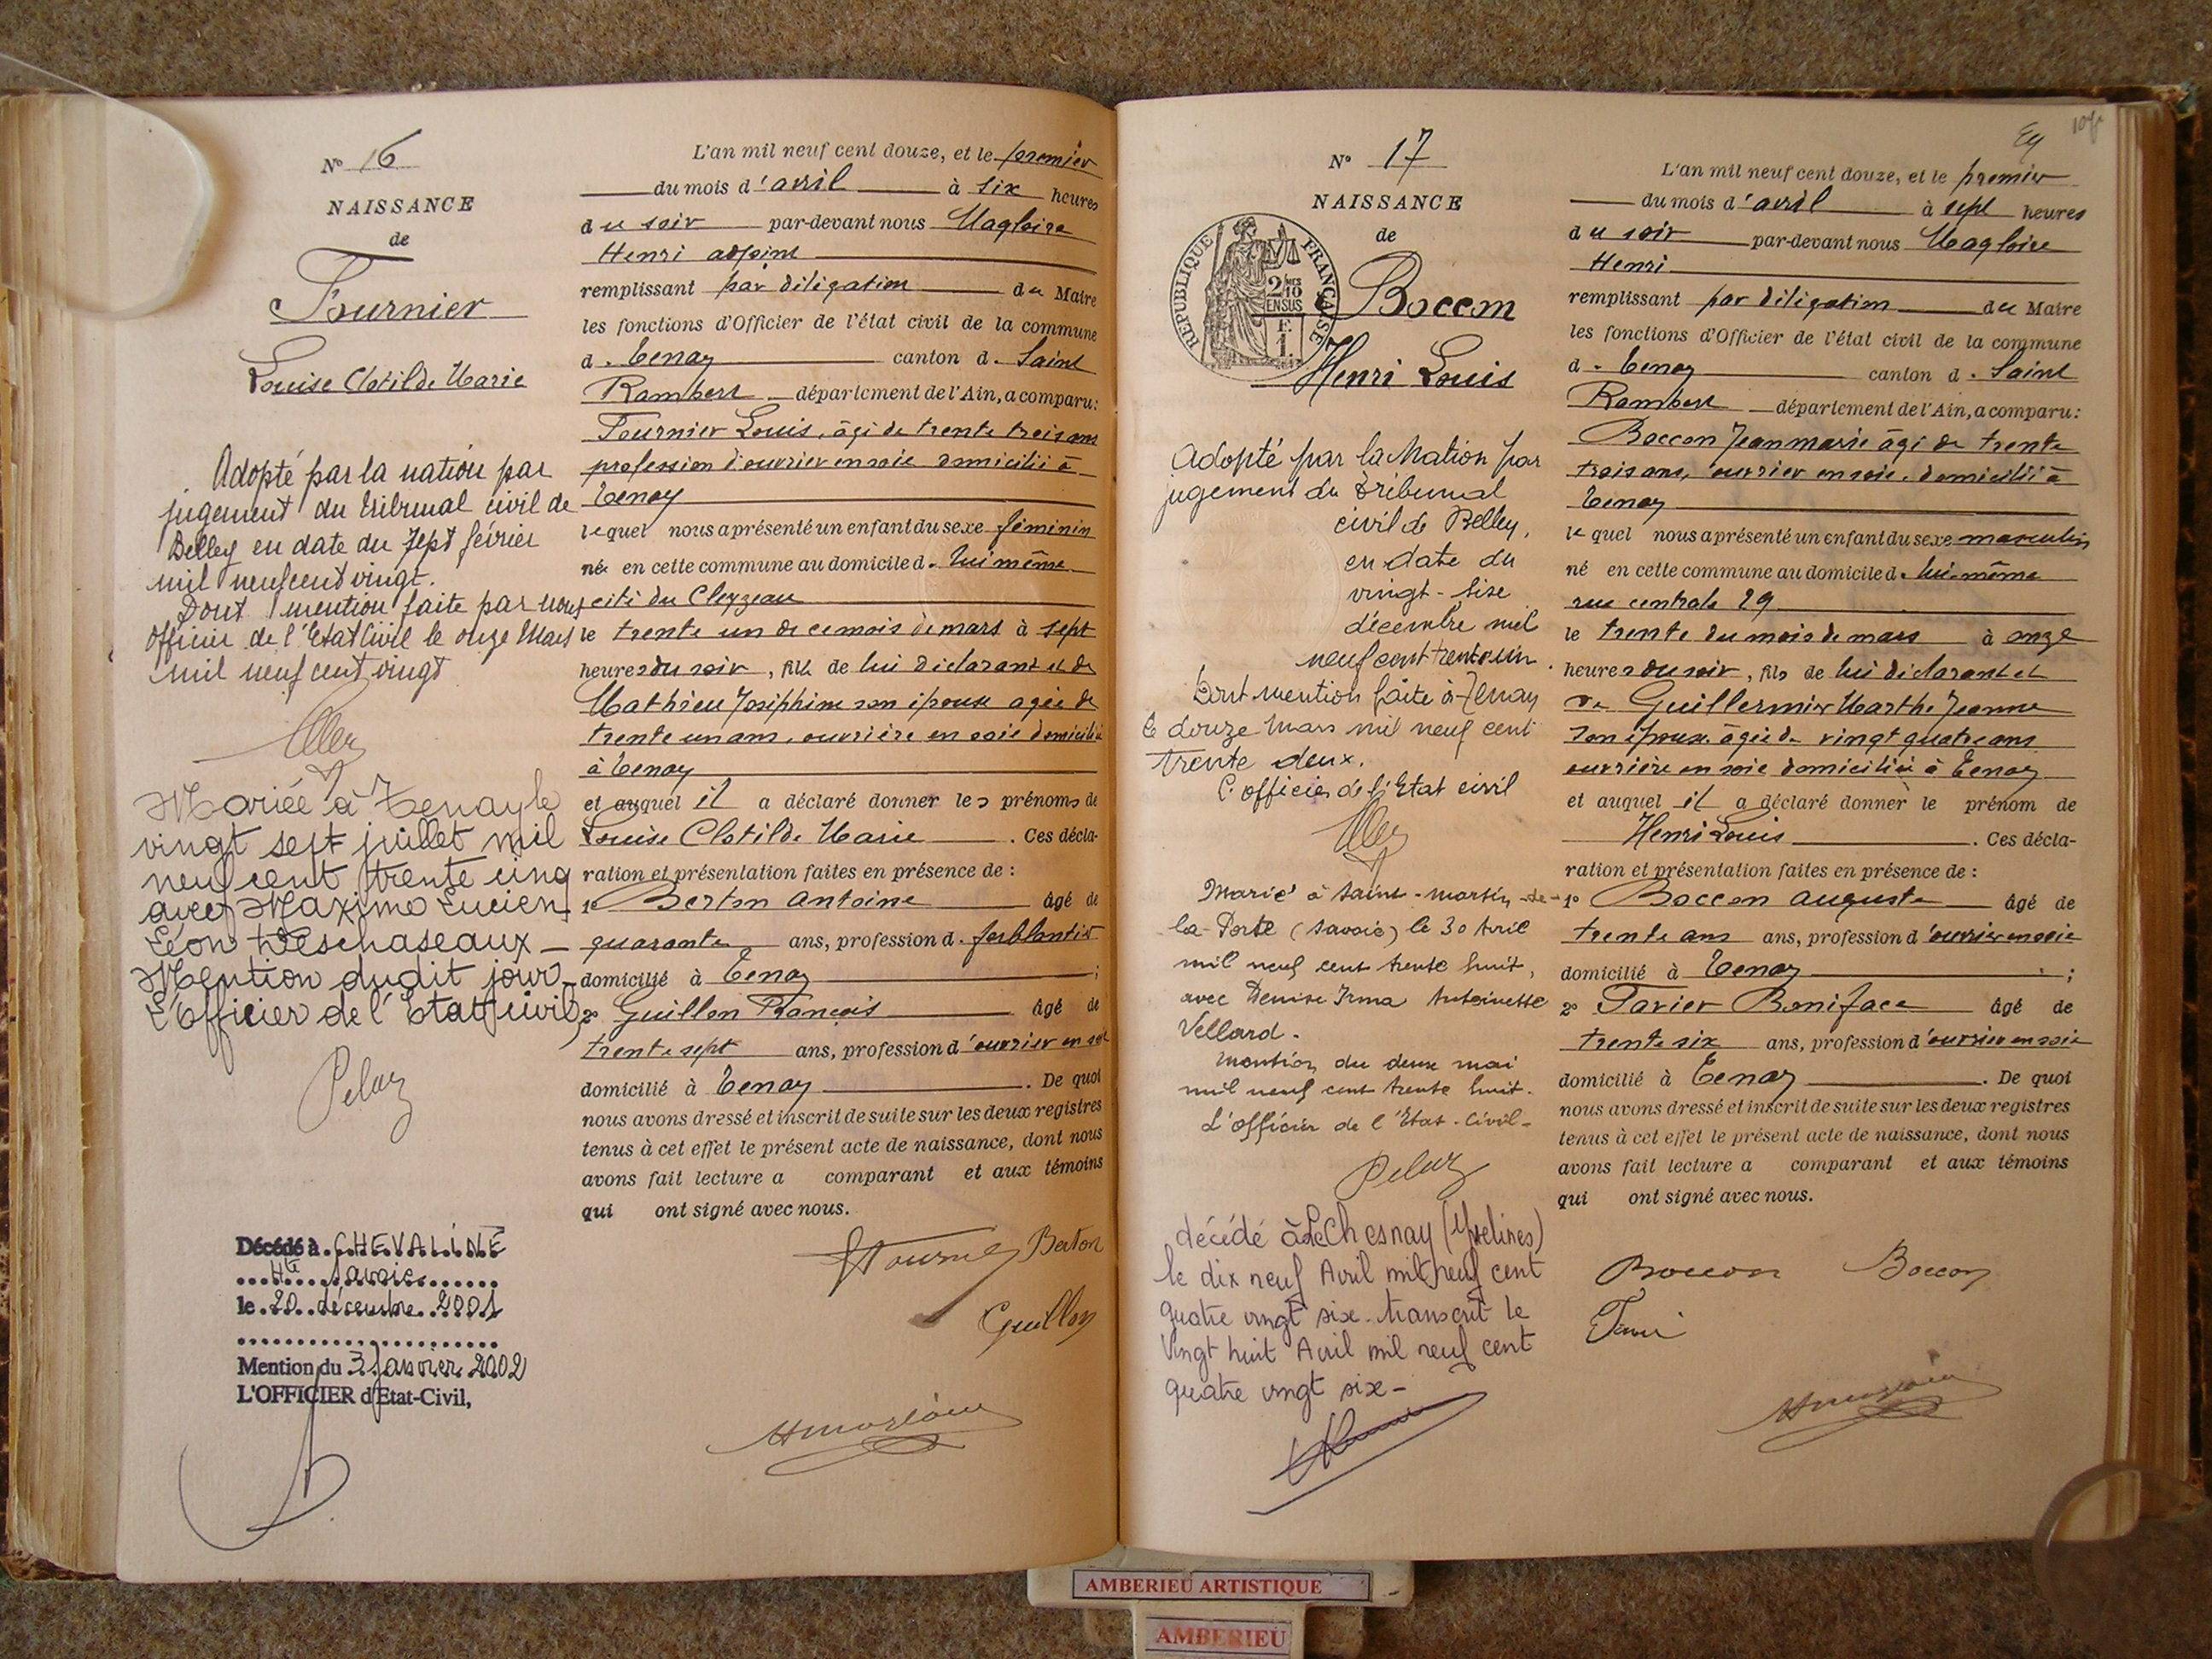 N° 16
NAISSANCE
de
Fournier
Louise Clotilde Marie
Adopté par la nation par
jugement du tribunal civil de
Belley en date du sept février
mil neuf cent vingt.
Dont mention faite par nous
officier de l'Etat Civil le onze Mars
mil neuf cent vingt
Mariée à Tenay le
vingt sept juillet mil
neuf cent trente cinq
avec Maxime Lucien
Léon Deschaseaux –
Mention dudit jour –
L'Officier de l'Etat civil,
Pelaz
Décédé à CHEVALINE
Hte Savoie
le 20 décembre 2001
Mention du 3 Janvier 2002
L'OFFICIER d'Etat-Civil,
L'an mil neuf cent douze, et le premier
du mois d'avril à six heures
du soir par-devant nous Magloire
Henri adjoint
remplissant par déligation du Maire
les fonctions d'Officier de l'état civil de la commune
d. Tenay canton d. Saint
Rambert département de l'Ain, a comparu:
Fournier Louis, âgé de trente trois ans
profession d'ouvrier en soie domicilié à
Tenay
lequel nous a présenté un enfant du sexe féminin
née en cette commune au domicile d. lui même
cité du Cleyzeau
le trente un de ce mois de mars à sept
heures du soir, fille de lui déclarant et de
Mathieu Joséphine son épouse agée de
trente un ans, ouvrière en soie domiciliée
à Tenay
et auquel il a déclaré donner les prénoms de
Louise Clotilde Marie. Ces décla-
ration et présentation faites en présence de :
1° Berton Antoine âgé de
quarante ans, profession d. ferblantier
domicilié à Tenay ;
2° Guillon François âgé de
trente sept ans, profession d'ouvrier en soie
domicilié à Tenay. De quoi
nous avons dressé et inscrit de suite sur les deux registres
tenus à cet effet le présent acte de naissance, dont nous
avons fait lecture a comparant et aux témoins
qui ont signé avec nous.
Berton
Guillon
N° 17
NAISSANCE
de
REPUBLIQUE FRANÇAISE
2/10 EN SUS
F. 1.
Boccon
Henri Louis
Adopté par la Nation par
jugement du Tribunal
civil de Belley,
en date du
vingt-sixe
décembre mil
neuf cent trente un.
Dont mention faite à Tenay
le douze Mars mil neuf cent
trente deux.
L'officier de l'Etat civil
Marié à Saint-Martin-de-
la-Porte (Savoie) le 30 Avril
mil neuf cent trente huit,
avec Denise Irma Antoinette
Vellard.
Mention du deux mai
mil neuf cent trente huit.
L'officier de l'Etat-Civil-
Pelaz
décédé à Le Chesnay (Yvelines)
le dix neuf Avril mil neuf cent
quatre vingt six. transcrit le
Vingt huit Avril mil neuf cent
quatre vingt six –
L'an mil neuf cent douze, et le premier
du mois d'avril à sept heures
du soir par-devant nous Magloire
Henri
remplissant par déligation du Maire
les fonctions d'Officier de l'état civil de la commune
d. Tenay canton d. Saint
Rambert département de l'Ain, a comparu:
Boccon Jean marie âgé de trente
trois ans, ouvrier en soie, domicilié à
Tenay
lequel nous a présenté un enfant du sexe masculin
né en cette commune au domicile d. lui-même
rue centrale 29
le trente du mois de mars à onze
heures du soir, fils de lui déclarant et
de Guillermin Marthe Jeanne
son épouse âgée de vingt quatre ans
ouvrière en soie domiciliée à Tenay
et auquel il a déclaré donner le prénom de
Henri Louis. Ces décla-
ration et présentation faites en présence de :
1° Boccon Auguste âgé de
trente ans ans, profession d'ouvrier en soie
domicilié à Tenay ;
2° Tavier Boniface âgé de
trente six ans, profession d'ouvrier en soie
domicilié à Tenay. De quoi
nous avons dressé et inscrit de suite sur les deux registres
tenus à cet effet le présent acte de naissance, dont nous
avons fait lecture a comparant et aux témoins
qui ont signé avec nous.
Boccon Boccon
AMBERIEU ARTISTIQUE
AMBERIEU